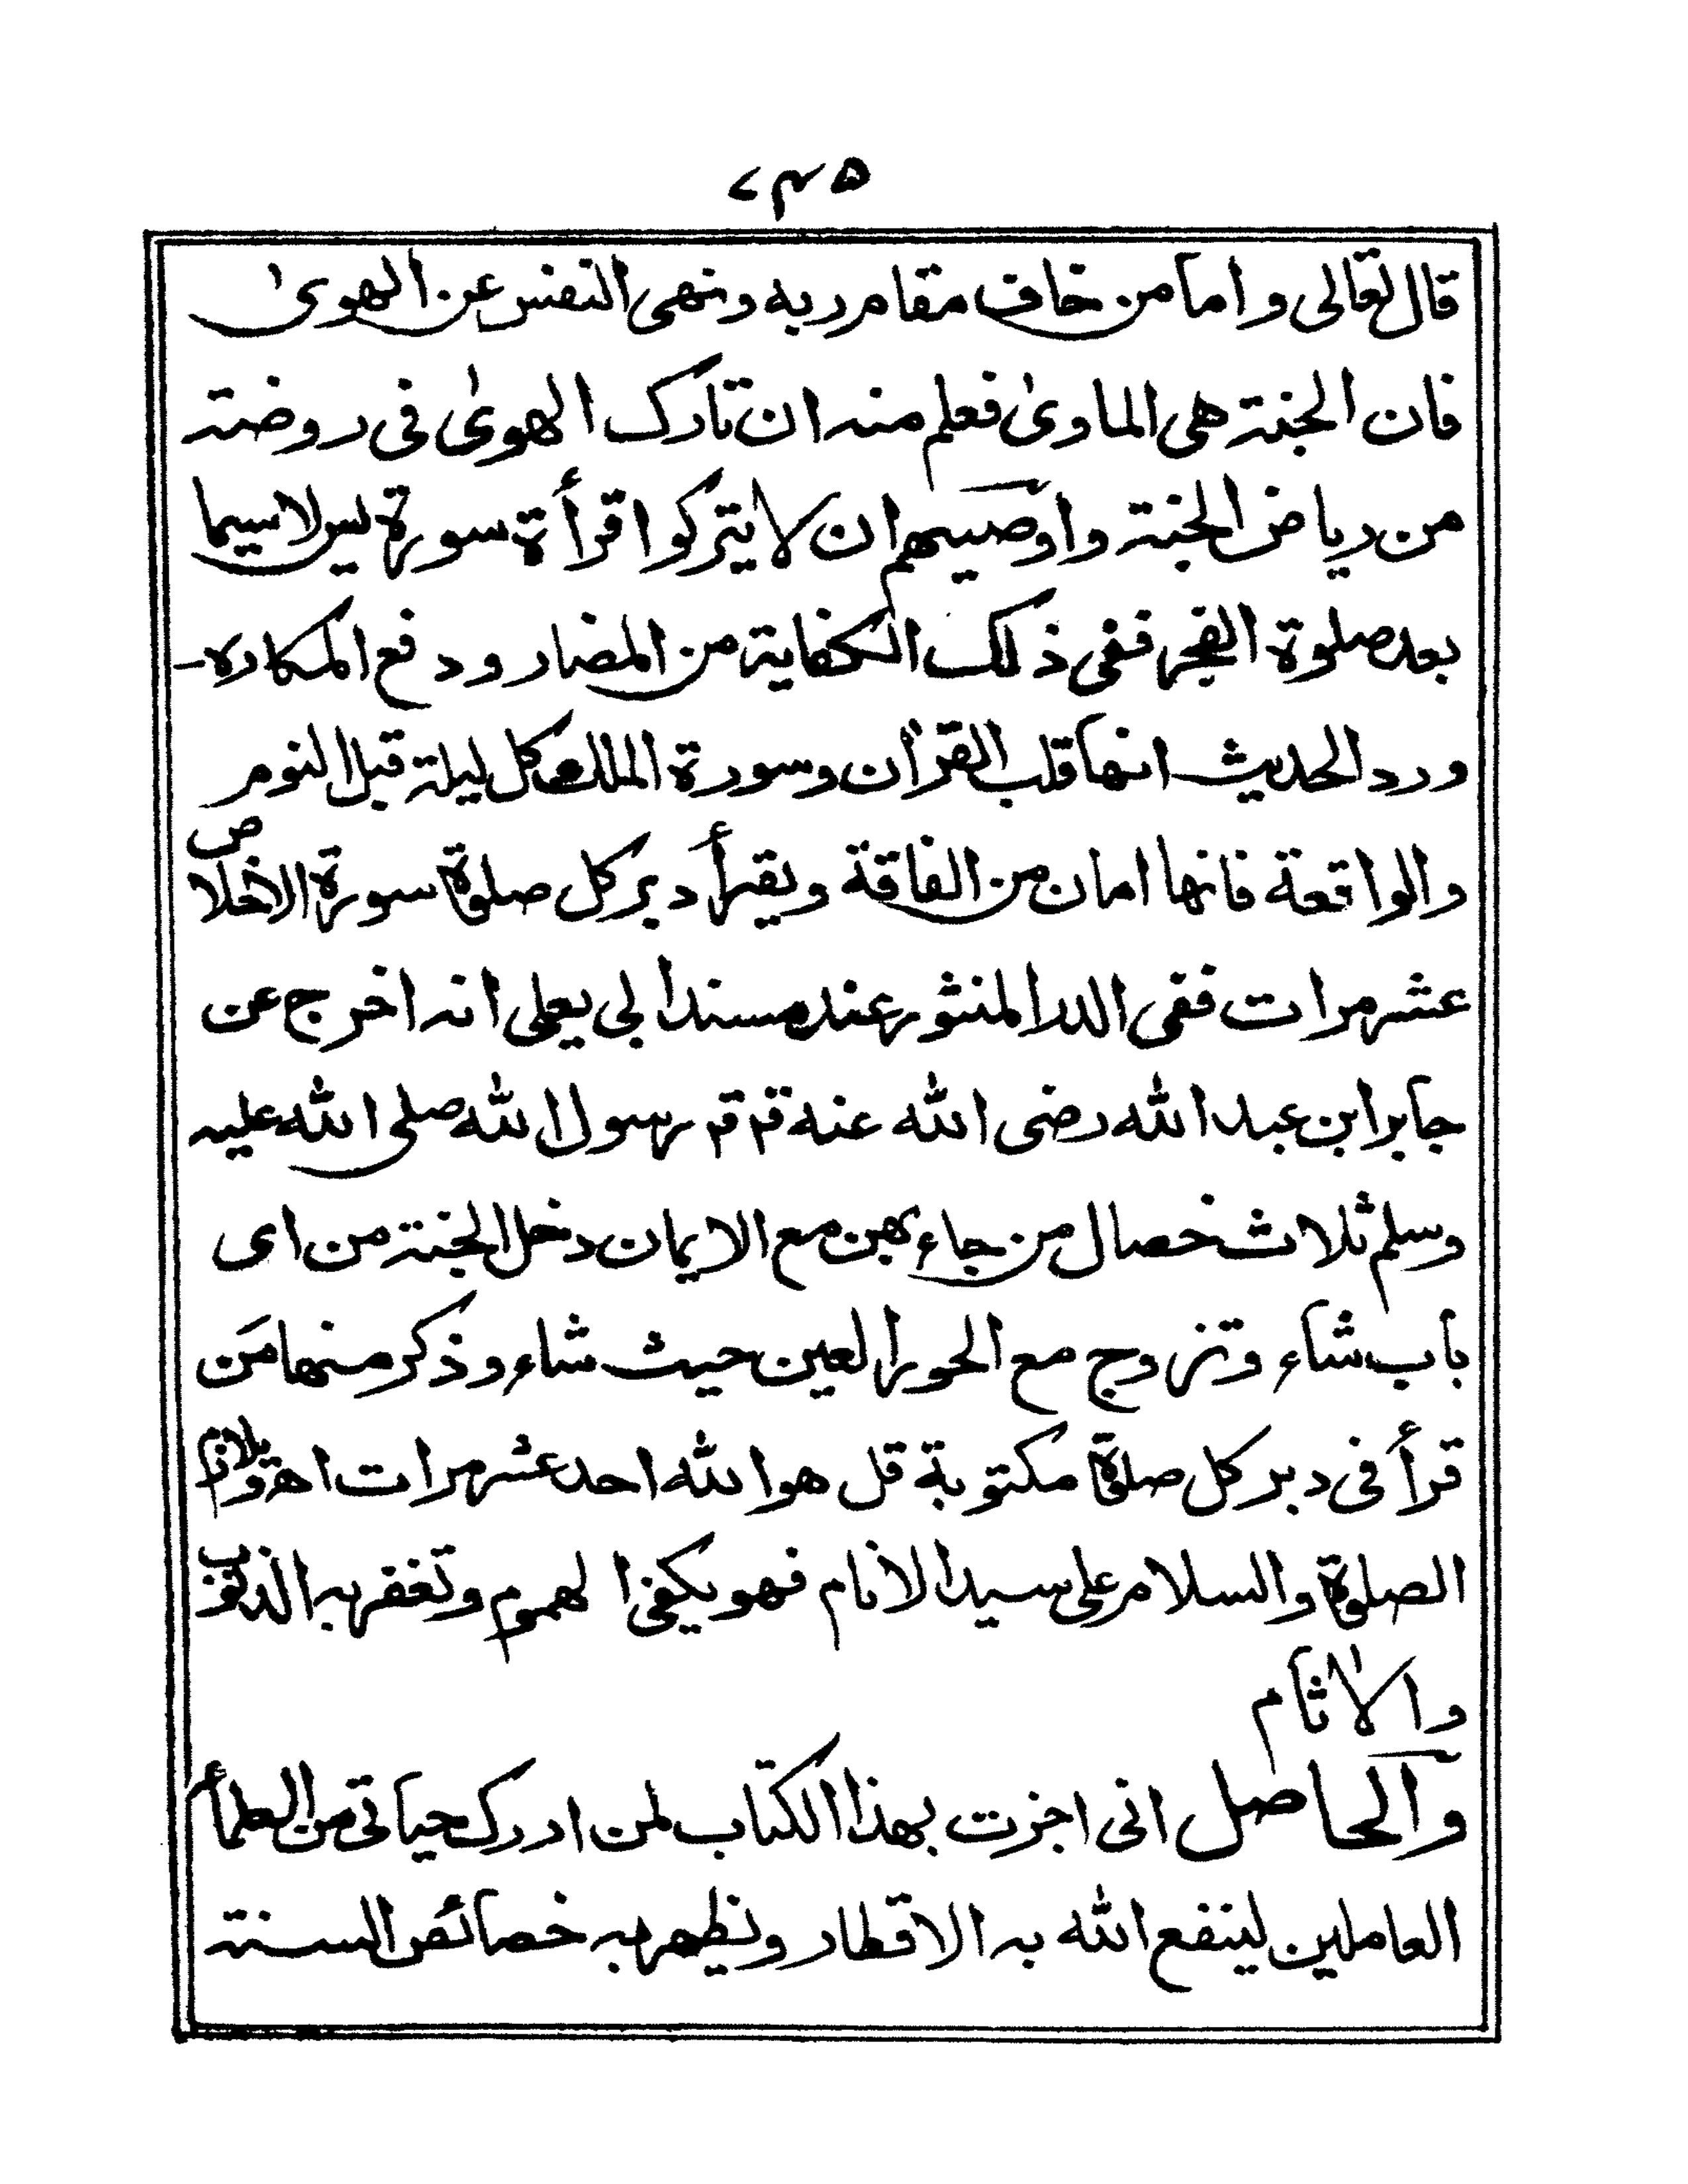 قال تعالى واما من خاف مقام ربه ونهى النفس عن الهوىٰ
فان الجنة هى الماوىٰ فعلم منه ان تارك الهوىٰ فى روضة
من رياض الجنة واوصيهم ان لا يتركوا قرأة سورة يس لاسيما
بعد صلوة الفجر ففى ذلك الكفاية من المضار ودفع المكاره-
ورد الحديث انها قلب القرأن وسورة الملك كل ليلة قبل النوم
والواقعة فانها امان من الفاقة ويقرأ دبر كل صلوة سورة الاخلاص
عشر مرات ففى الدر المنثور عند مسند ابى يعلى انه اخرج عن
جابر ابن عبد الله رضى الله عنه قم قم رسول الله صلى الله عليه
وسلم ثلاث خصال من جاء بهن مع الايمان دخل الجنة من اى
باب شاء وتزوج مع الحور العين حيث شاء وذكر منها مَن
قرأ فى دبر كل صلوة مكتوبة قل هو الله احد عشر مرات اھ
الصلوة والسلام على سيد الانام فهو يكفى الهموم وتغفر به الذنوب
والاٰثام
والحاصل انى اجزت بهذا الكتاب لمن ادرك حياتى من العلمأ
العاملين لينفع الله به الاقطار ونظهر به خصائص السنة